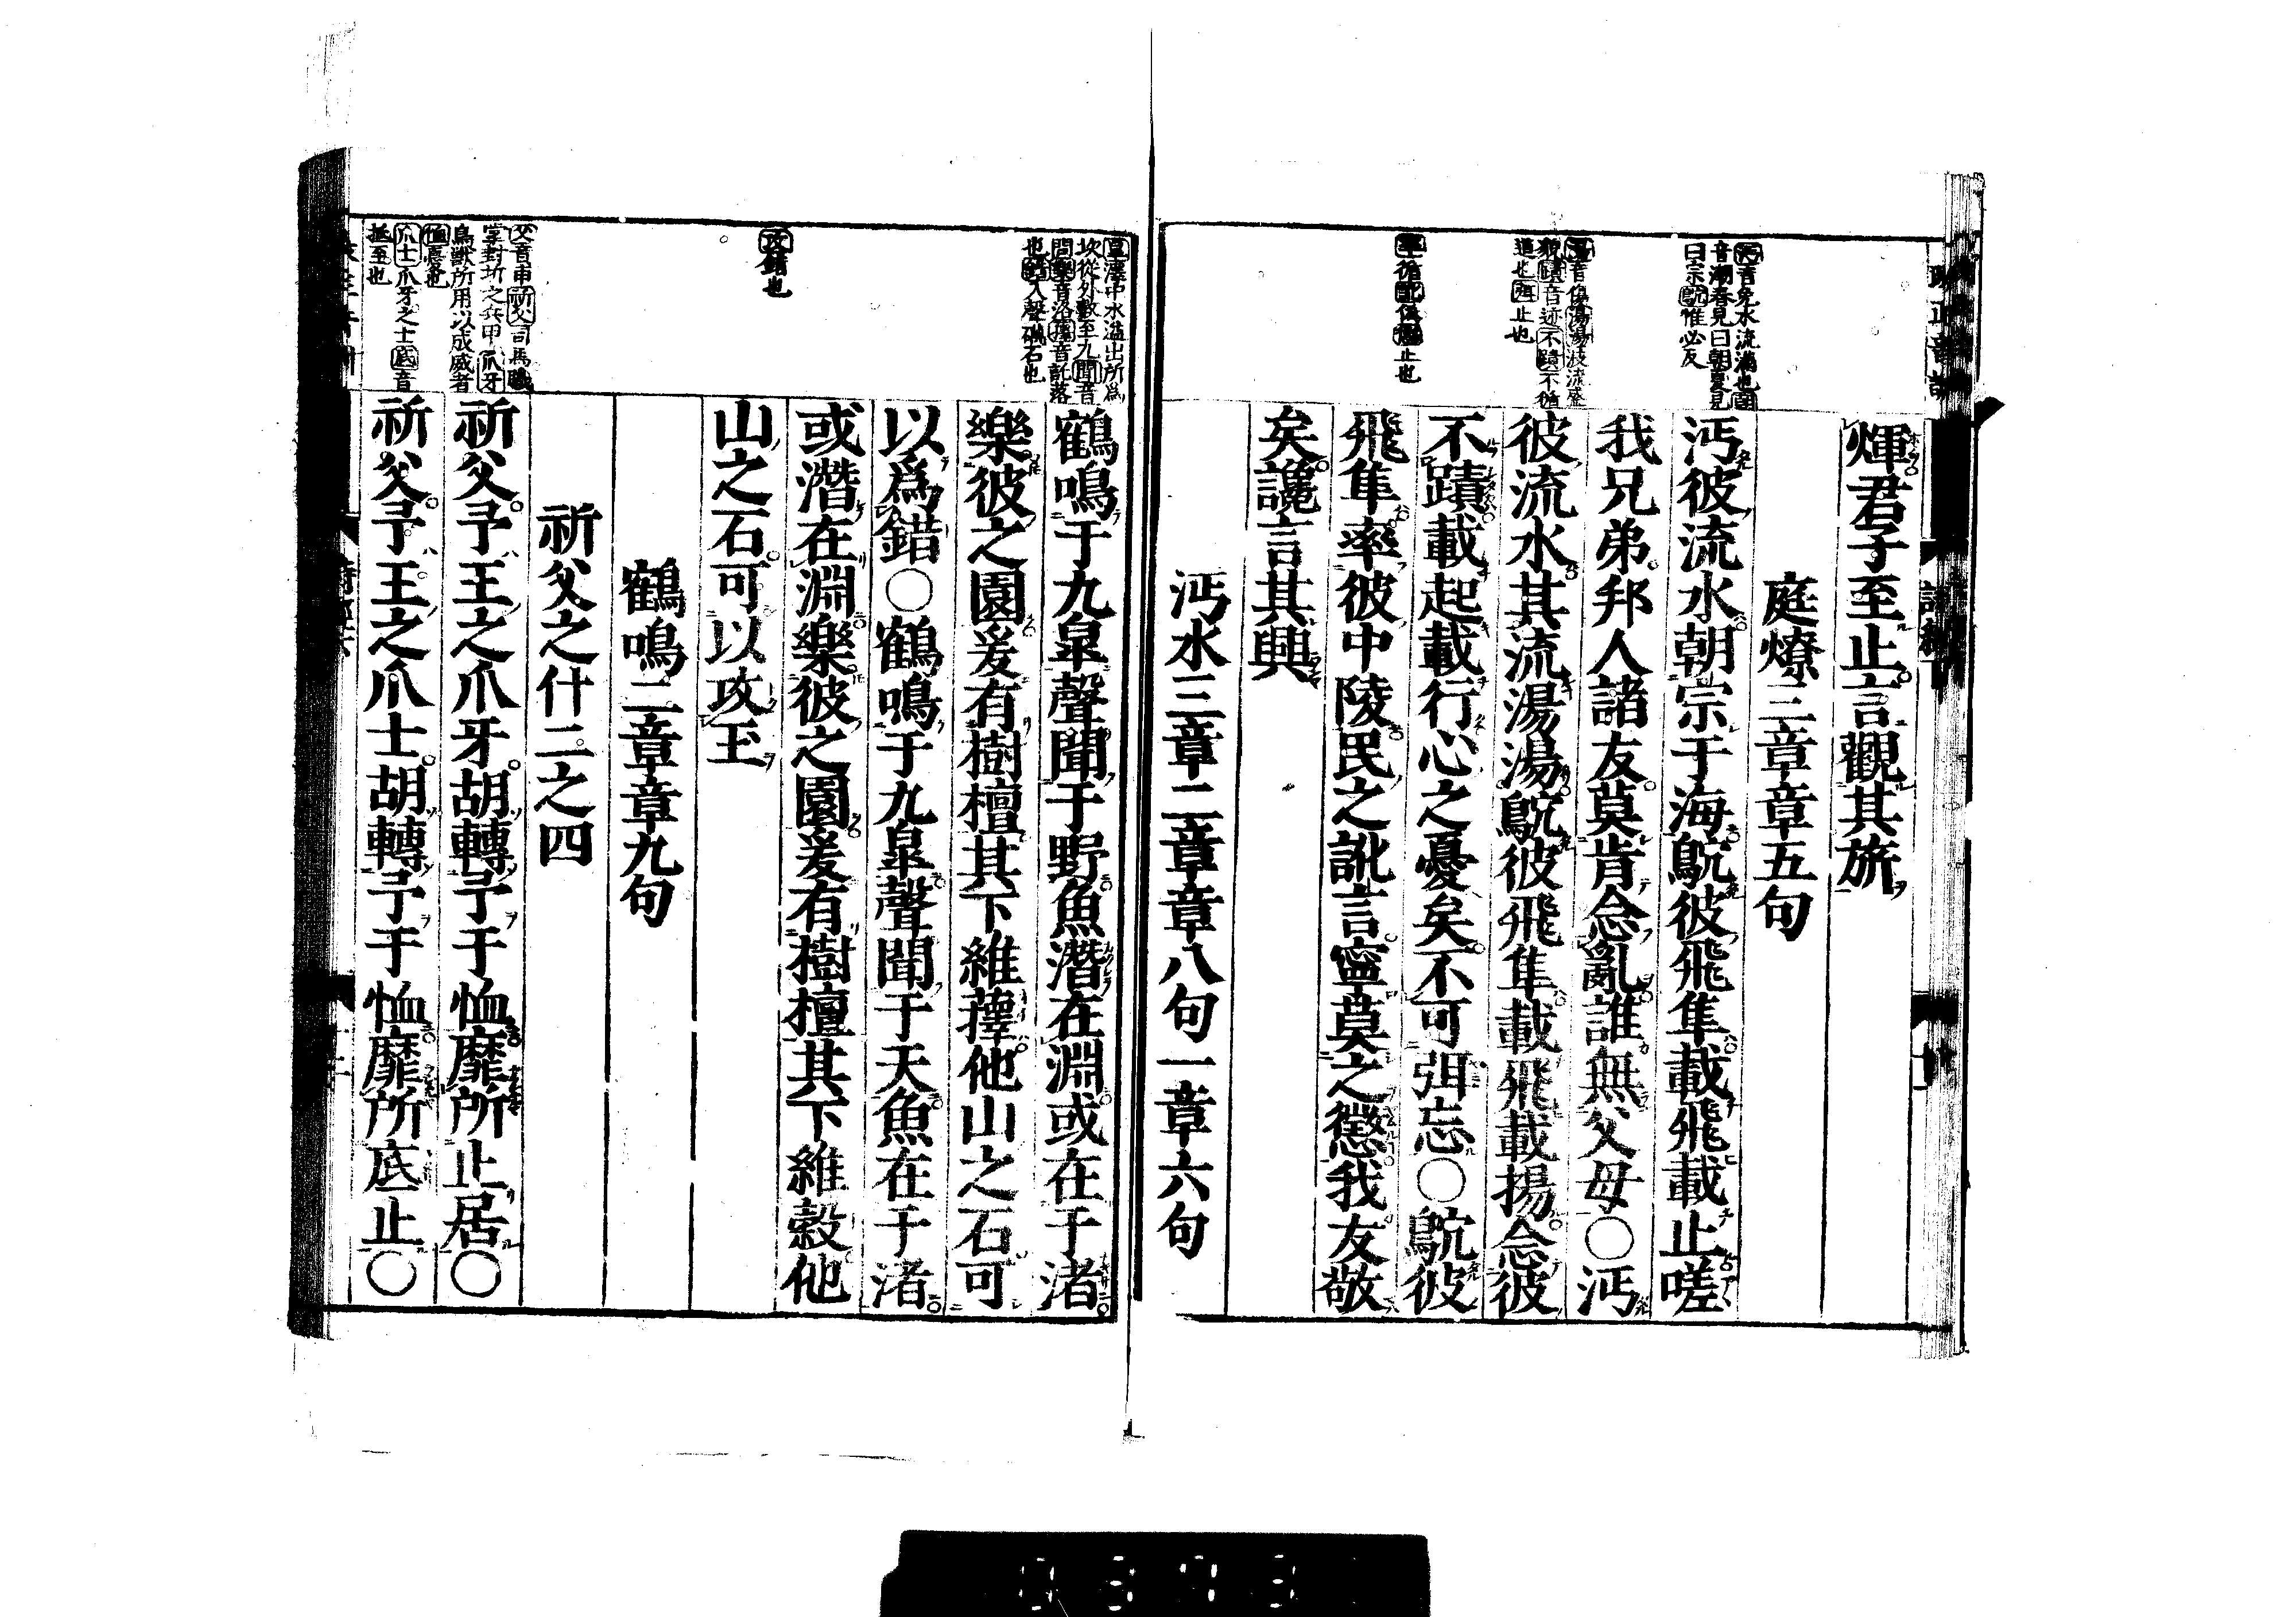 煇君子至止言觀其旅
庭燎三章章五句
沔彼流水朝宗于海鴥彼飛隼載飛載止嗟
我兄弟邦人諸友莫肯念亂誰無父母○沔
彼流水其流湯湯鴥彼飛隼載飛載揚念彼
不蹟載起載行心之憂矣不可弭忘○鴥彼
飛隼率彼中陵民之訛言寧莫之懲我友敬
矣讒言其興
沔水三章二章章八句一章六句
鶴鳴于九皐聲聞于野魚潛在淵或在于渚
樂彼之園爰有樹檀其下維蘀他山之石可
以爲錯○鶴鳴于九皐聲聞于天魚在于渚
或潛在淵樂彼之園爰有樹檀其下維穀他
山之石可以攻玉
鶴鳴二章章九句
祈父之什二之四
祈父予王之爪牙胡轉予于恤靡所止居○
祈父予王之爪士胡轉予于恤靡所底止○
沔音免水流滿也朝
音潮春見曰朝夏見
曰宗鴥惟必反
湯音傷湯湯波流盛
貌蹟音迹不蹟不循
道也弭止也
率循訛僞懲止也
皐澤中水溢出所爲
坎從外數至九聞音
問樂音洛蘀音託落
也錯入聲礪石也
攻錯也
父音甫祈父司馬職
掌封圻之兵甲爪牙
鳥獸所用以成威者
恤憂也
爪士爪牙之士底音
抵至也